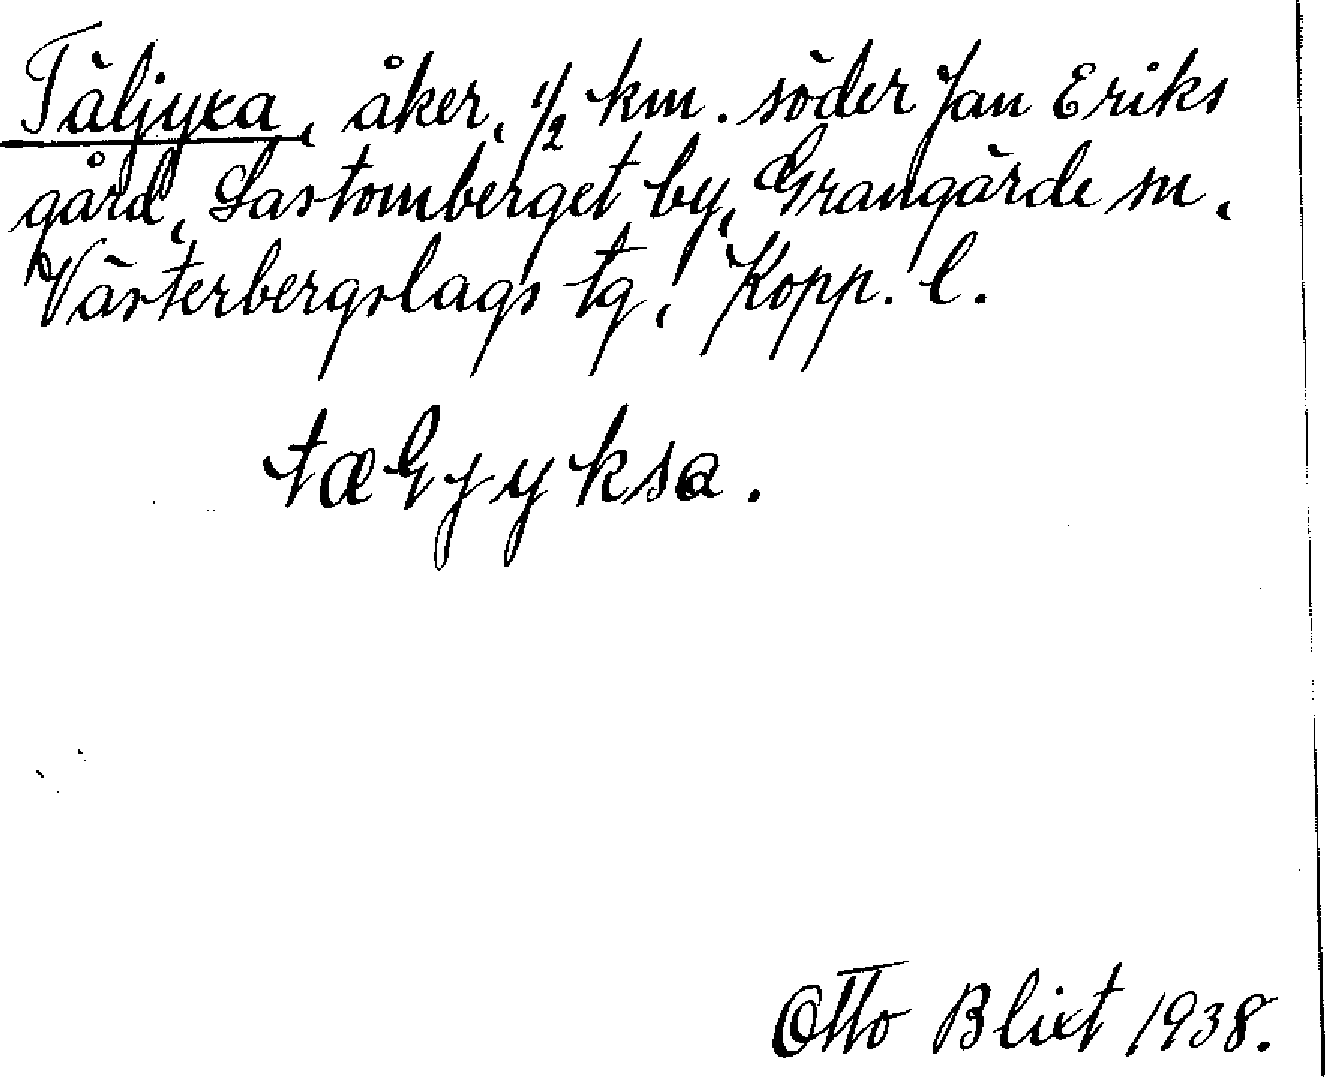 Täljyxa, åker, 1/2 km. söder Jan Eriks
gård, Lastomberget by, Grangärde sn,
Västerbergslags tg, Kopp. l.
tæljyksa.
Otto Blixt 1938.